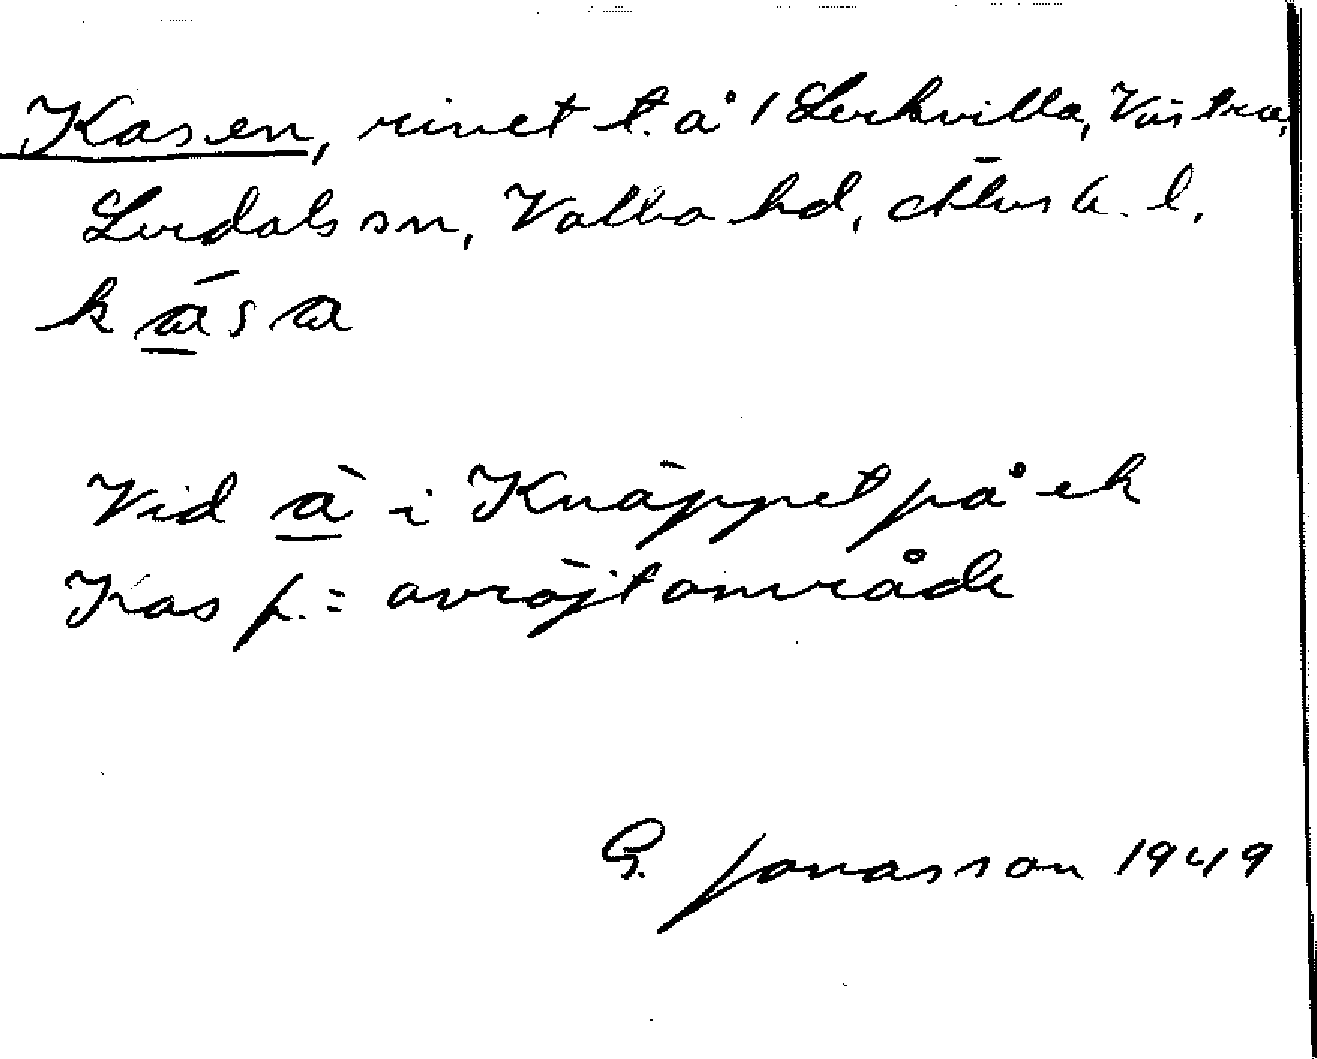 Kasen, rivet t. å 1 Lerkvilla, Västra,
Lerdals sn, Valbo hd, Älvsb. l.
kása
Vid à i Knäppet på ek
Kas f. = avröjt område
G. Jonasson 1949